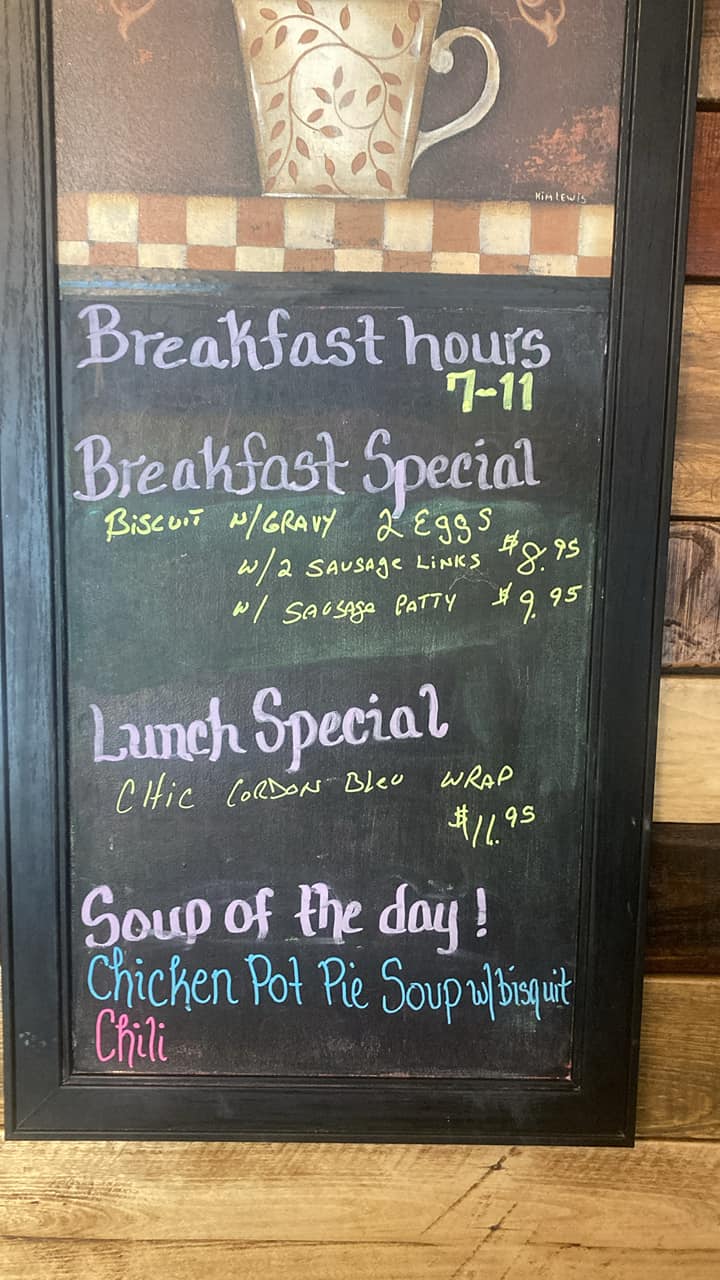 Kim Lewis
Breakfast hours
7-11
Breakfast Special
Biscuit w/Gravy 2 Eggs
w/2 Sausage Links $8.95
w/ Sausage Patty $9.95
Lunch Special
Chic Cordon Bleu Wrap
$11.95
Soup of the day!
Chicken Pot Pie Soup w/bisquit
Chili